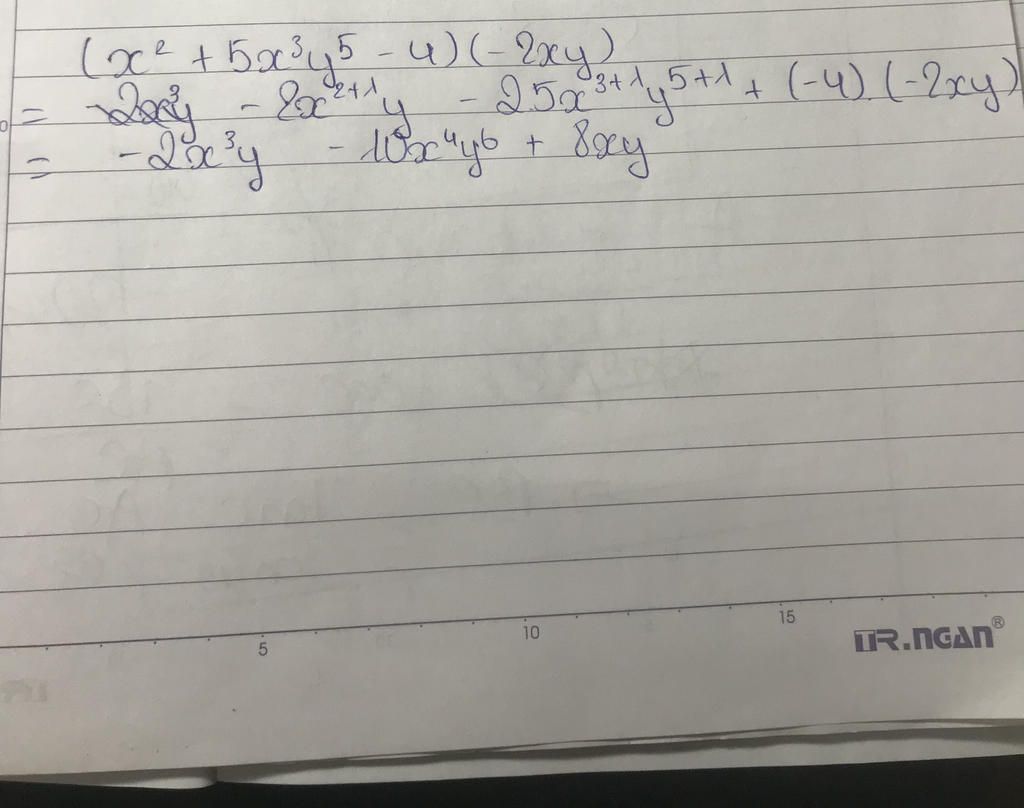 (x² + 5x³y⁵ - 4)(-2xy)
= - 2x²⁺¹y - 25x³⁺¹y⁵⁺¹ + (-4).(-2xy)
= -2x³y - 10x⁴y⁶ + 8xy
5 10 15
TR.NGAN®